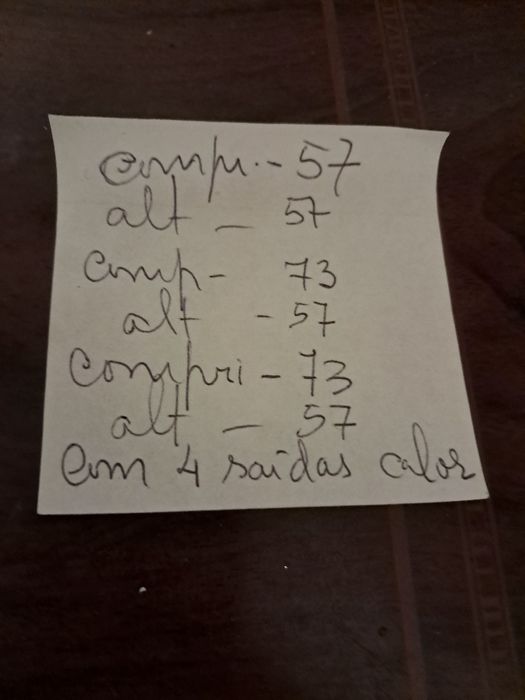 compr. - 57
alt - 57
comp - 73
alt - 57
compri - 73
alt - 57
Com 4 saídas calor